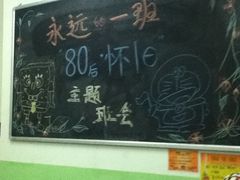 永远的一班
80后怀旧
主题
班会